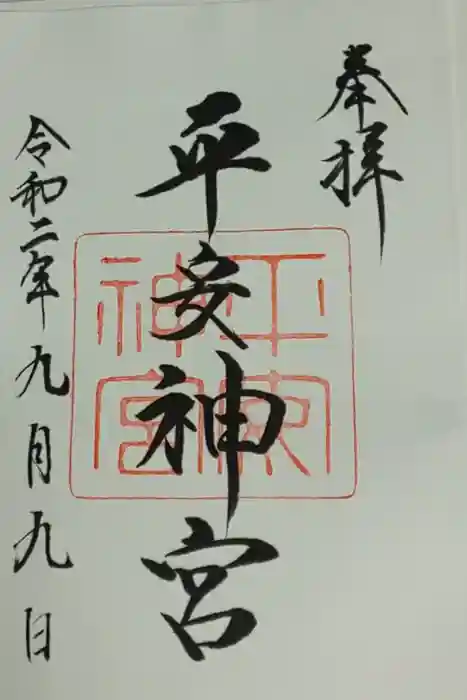 奉拝
平安神宮
平安神宮
令和二年九月九日